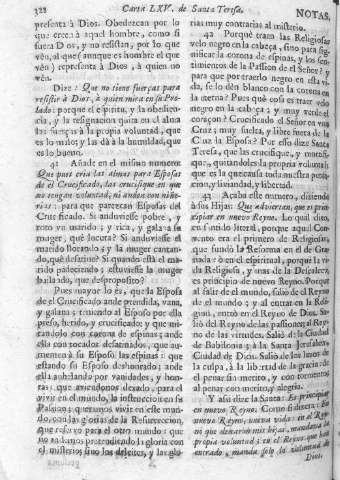 322 Carta LXV. de Santa Teresa. NOTAS.
presenta à Dios. Obedezcan por lo
que creen à aquel hombre, como si
fuera Dios, y no resistan, por lo que
vèn, al que (aunque es hombre el que
vèn) representa à Dios, à quien no
vèn.
Dize: Que no tiene fuerças para
resistir à Dios, à quien mira en su Pre-
lado: porque el espiritu, y la obedien-
cia, y la resignacion quita en el alma
las fuerças à la propia voluntad, que
es lo malo; y las dà à la humildad, que
es lo bueno.
41 Añade en el mismo numero:
Que pues cria las almas para Esposas
de el Crucificado, las crucifique en que
no tengan voluntad, ni anden con niñe-
rias: para que parezcan Esposas del
Crucificado. Si anduviesse pobre, y
roto vn marido; y rica, y gala a su
muger, què locura? Si anduviesse el
marido llorando; y la muger cantan-
do, què desatino? Si quando està el ma-
rido padeciendo; estuviesse la muger
bailando, que desproposito?
Pues mayor lo es, que la Esposa
de el Crucificado ande prendida, vana,
y galana; teniendo al Esposo por ella
preso, herido, y crucificado; y que mi-
randolo con corona de espinas; ande
ella con tocados desatinados, que au-
menten à su Esposo las espinas: que
estando su Esposo deshonrado; ande
ella anhelando por vanidades, y hon-
ras: que aviendonos dexado, para el
vivir en el mundo, la instruccion en su
Passion; queramos vivir en este mun-
do, con las glorias de la Resurreccion,
que reservò para el otro mundo: que
no seamos pretendiendo la gloria con
el misterio, sino los deleites, y las glo-
rias muy contrarias al misterio.
42 Porquè traen las Religiosas
velo negro en la cabeça, sino para sig-
nificar la corona de espinas, y los sen-
timientos de la Passion de el Señor? y
para que por traerlo negro en esta vi-
da, se lo dèn blanco con la corona en
la eterna? Pues què cosa es traer velo
negro en la cabeça; y muy verde el
coraçon? Crucificado el Señor en vna
Cruz; muy suelta, y libre fuera de la
Cruz la Esposa? Por esso dize Santa
Teresa, que las crucifique, y mortifi-
que, quitandoles la propia voluntad;
que es la que causa toda nuestra perdi-
cion, y liviandad, y libertad.
43 Acaba este numero, diziendo
à sus Hijas: Que adviertan, que es prin-
cipiar en nuevo Reyno. Lo qual dito,
en sentido literal, porque aquel Con-
vento era el primero de Religiosas,
que fundò la Reforma en el de Gra-
nada: ò en el espiritual, porque la vi-
da Religiosa, y mas de la Descalcez,
es principio de nuevo Reyno. Porque
al salir de el mundo, se saliò del Reyno
de el mundo; y al entrar en la Reli-
gion, entrò en el Reyno de Dios. Sa-
liò del Reyno de las passiones; al Rey-
no de las virtudes. Saliò de la Ciudad
de Babilonia; à la Santa Jerusalen,
Ciudad de Dios. Saliò de los lazos de
la culpa, à la libertad de la gracia: de
el penar sin merito, y con tormento;
al penar con merito, y alegria.
Y assi dize la Santa: Es principiar
en nuevo Reyno. Como si dixera: En
nuevo Reyno, nueva vida: en el Rey-
propia voluntad; en el Reyno que han
entrado, manda solo la voluntad de
Dios.